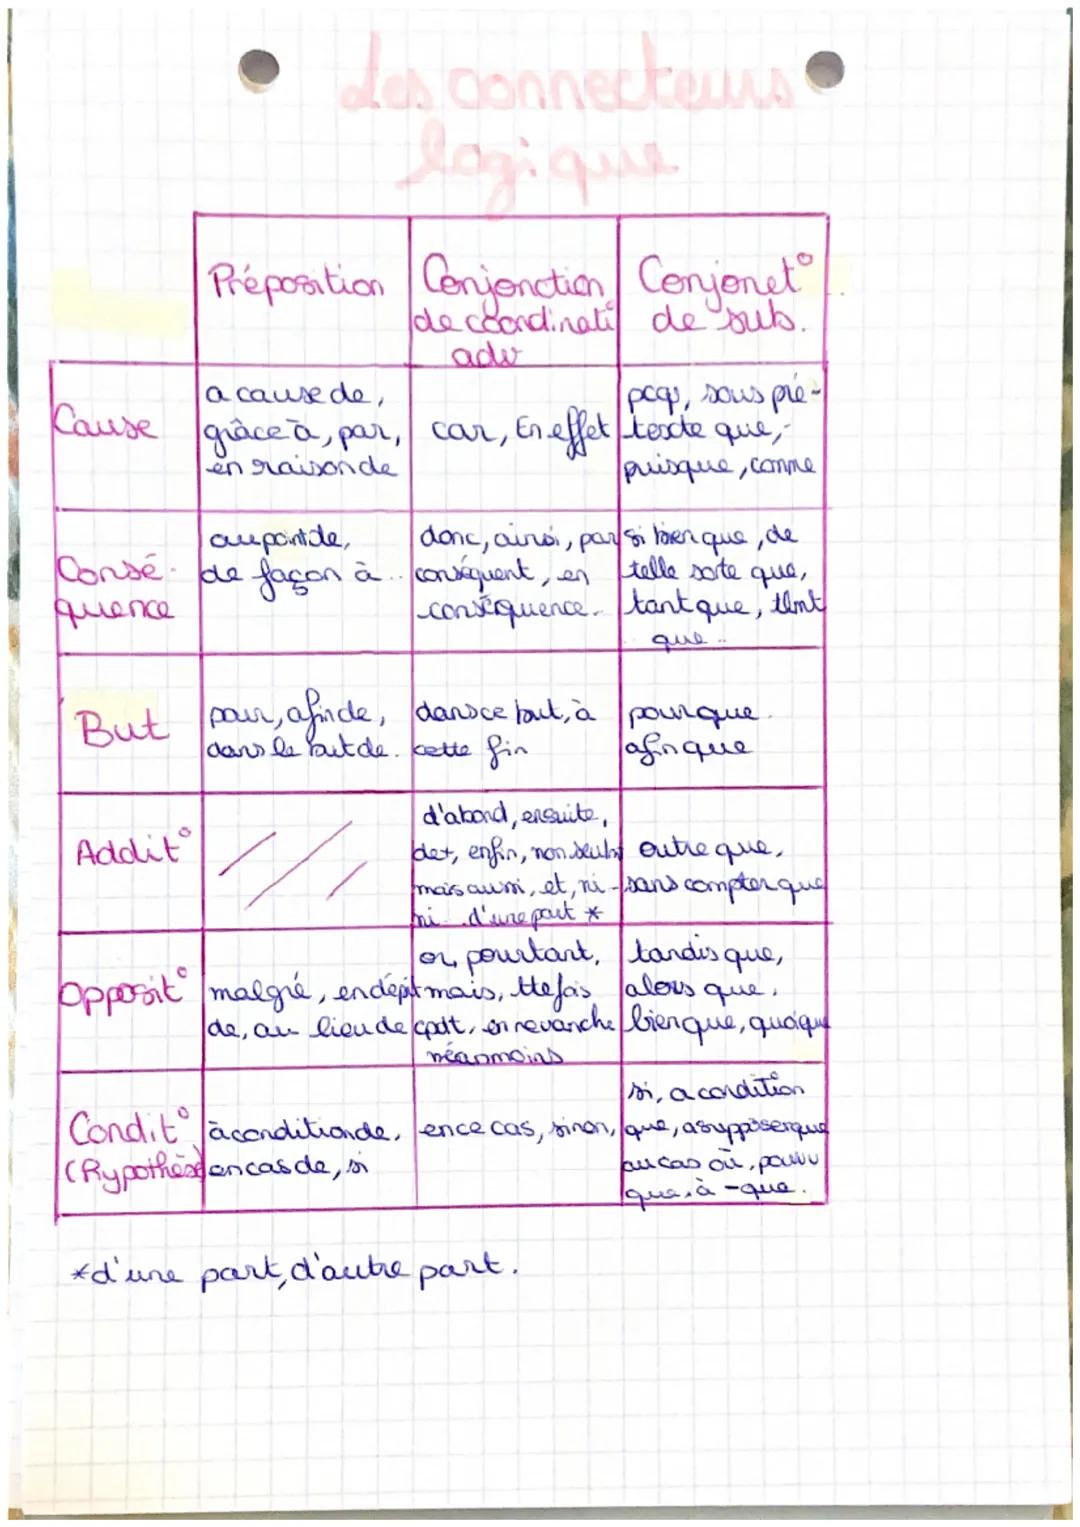 Les connecteurs
logique
Préposition
Conjonction
de coordinati°
adv
Conjonct°
de sub.
Cause
a cause de,
grâce à, par,
en raison de
car, En effet
pcq, sous pré-
texte que,
puisque, comme
Consé-
quence
au point de,
de façon à..
donc, ainsi, par
conséquent, en
conséquence.
si bien que, de
telle sorte que,
tant que, tlmt
que..
But
pour, afin de,
dans le but de.
dans ce but, à
cette fin
pour que
afin que
Addit°
d'abord, ensuite,
de+, enfin, non seulmt
mais aussi, et, ni -
ni.. d'une part *
outre que,
sans compter que
Opposit°
malgré, en dépit
de, au lieu de
or, pourtant,
mais, ttefois
cpdt, en revanche
néanmoins
tandis que,
alors que,
bien que, quoique
Condit°
(Hypothèse)
à condition de,
en cas de, si
en ce cas, sinon,
si, a condition
que, a supposer que
au cas où, pourvu
que, à - que.
*d'une part, d'autre part.